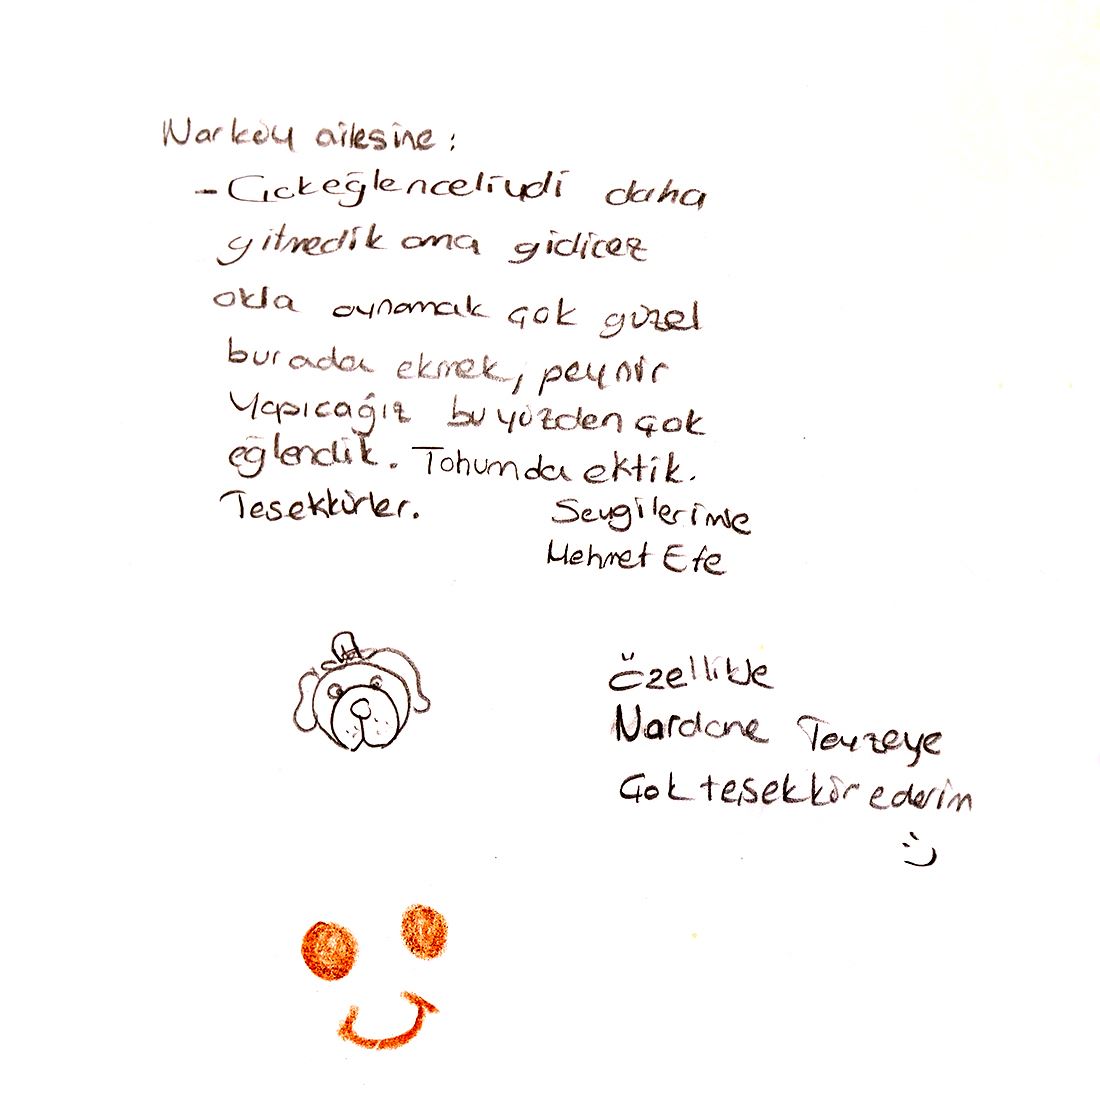 Narköy ailesine:
- Çok eğlenceliydi daha
gitmedik ama gidicez
okla oynamak çok güzel
burada ekmek, peynir
Yapıcağız bu yüzden çok
eğlendik. Tohumda ektik.
Teşekkürler. Sevgilerimle
Mehmet Efe
Özellikle
Nardane Teyzeye
Çok teşekkür ederim
:)